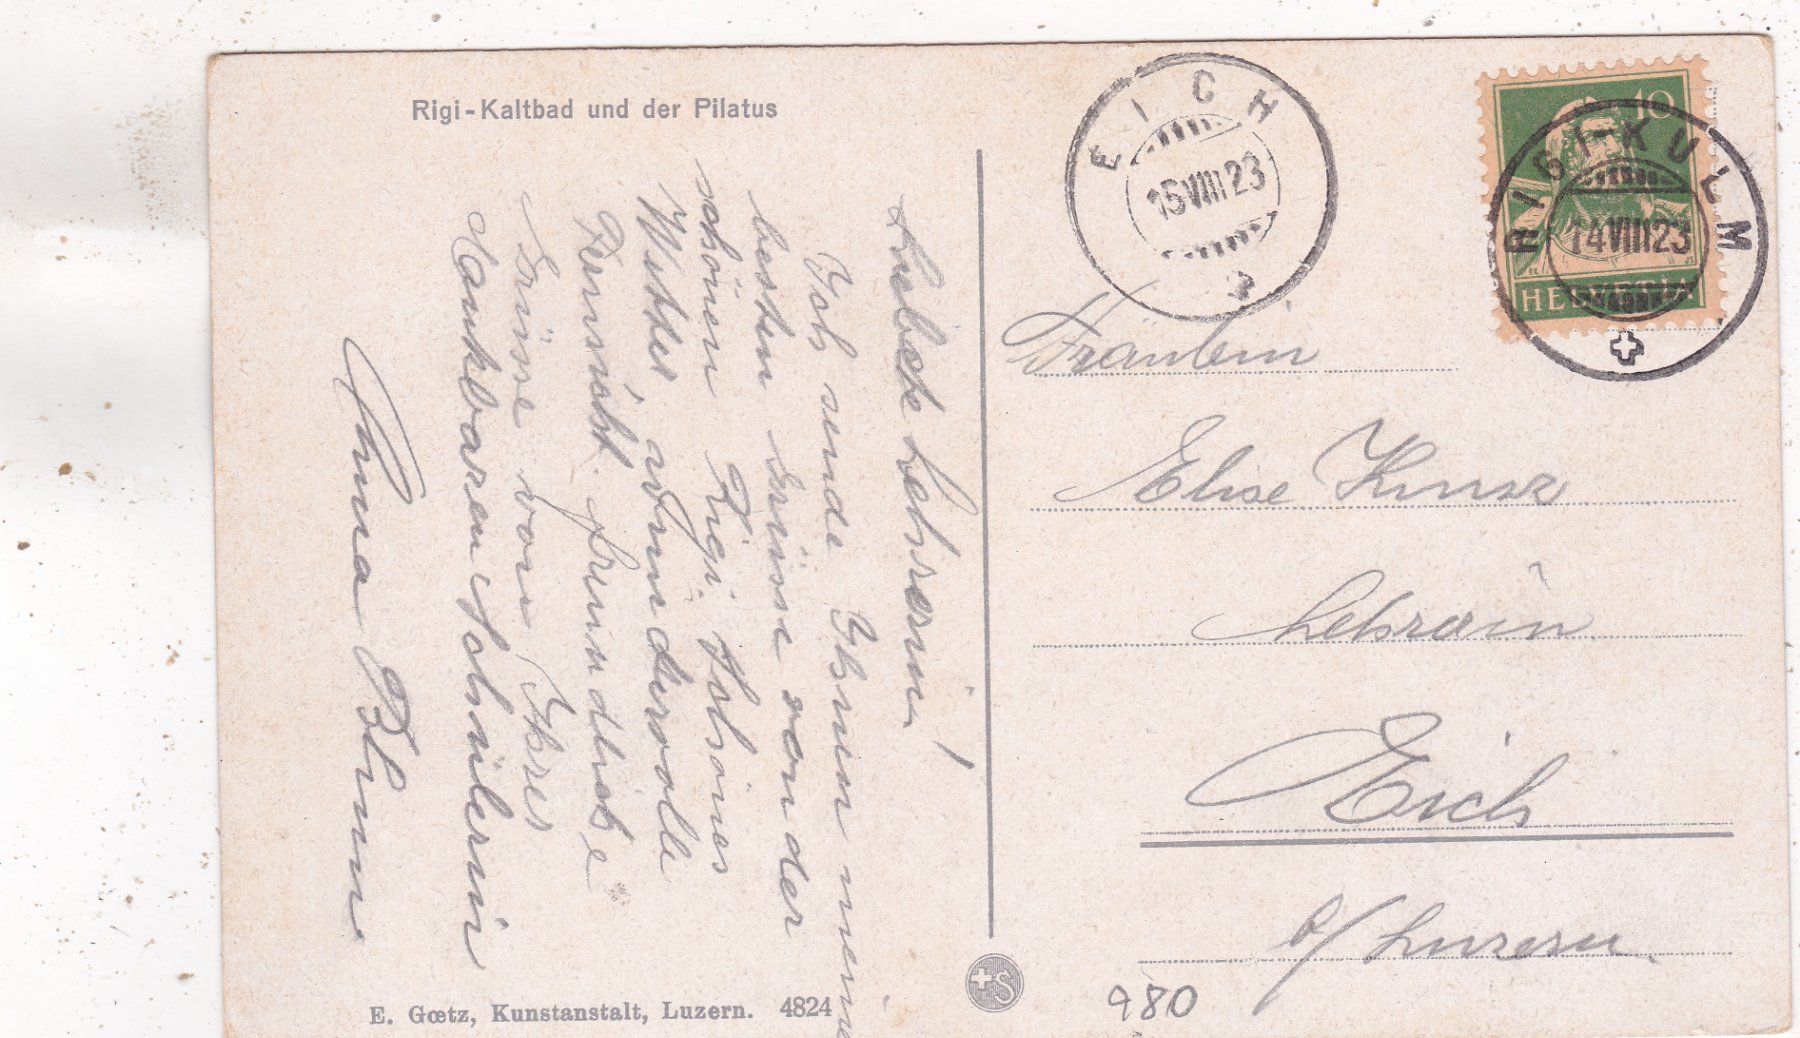 Rigi-Kaltbad und der Pilatus
Liebe Lehrerin!
Ich sende Ihnen meine
besten Grüsse von der
schönen Rigi. Schönes
Wetter, wundervolle
Fernsicht. freundliche
Grüsse von Ihrer
dankbaren Schülerin
Anna Blum
E. Gœtz, Kunstanstalt, Luzern. 4824
EICH
15 VIII 23
10
HELVETIA
RIGI-KULM
14 VIII 23
Fräulein
Elise Kunz
Lehrerin
Eich
b/Luzern
S
980